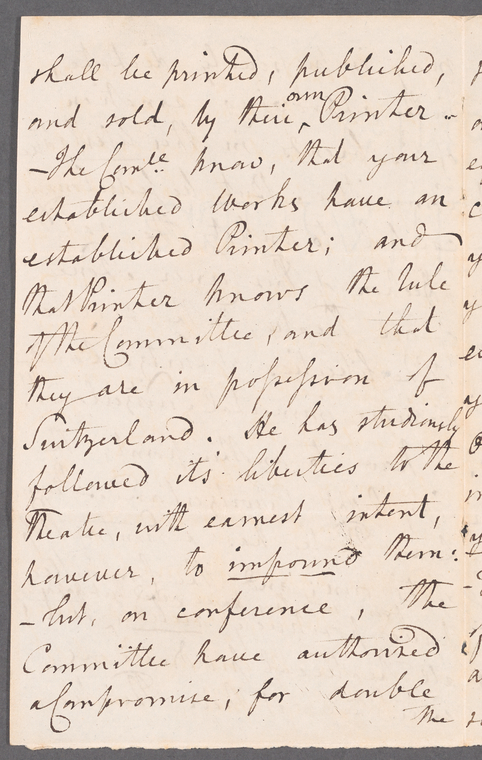 shall be printed, published,
and sold, by their own Printer -
-The Com:ee know, that your
established works have an
established Printer; and
that Printer knows the rule
of the Committee, and that
they are in possession of
Switzerland. He has studiously
followed its liberties to the
Theatre, with earnest intent,
however, to impound them:
- but, on conference, the
Committee have authorised
a Compromise, for double
the